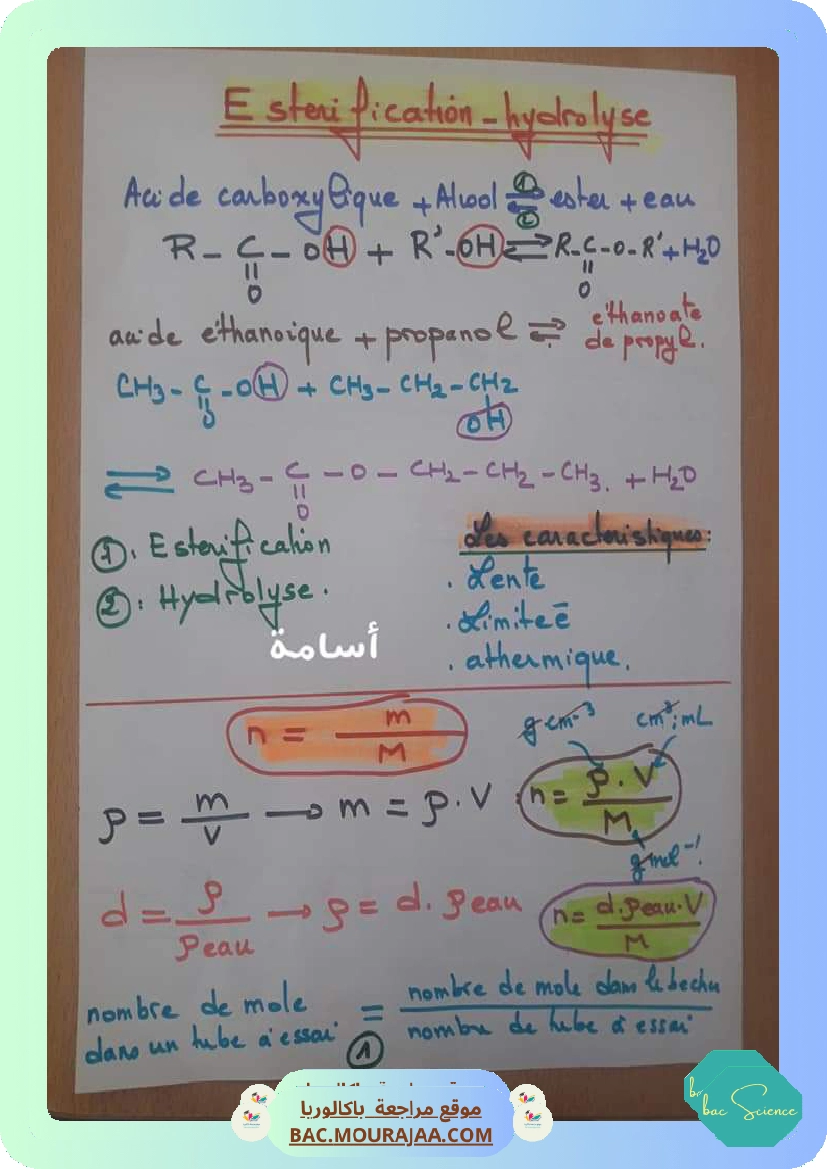 Esterification - hydrolyse
Acide carboxylique + Alcool ⇌ ester + eau
1
2
R - C - OH + R' - OH ⇌ R - C - O - R' + H2O
O
O
acide éthanoique + propanol ⇌ éthanoate
de propyle.
CH3 - C - OH + CH3 - CH2 - CH2
O
OH
⇌ CH3 - C - O - CH2 - CH2 - CH3. + H2O
O
1 : Esterification
2 : Hydrolyse.
Les caracteristiques :
. Lente
. Limiteé
. athermique.
أسامة
n = m
M
g cm⁻³ cm³; mL
ρ = m → m = ρ . V
V
n = ρ . V
M
g mol⁻¹
d = ρ → ρ = d . ρeau
ρeau
n = d. ρeau . V
M
nombre de mole
dans un tube à essai
=
nombre de mole dans le becher
nombre de tube à essai
1
موقع مراجعة باكالوريا
BAC.MOURAJAA.COM
bac Science